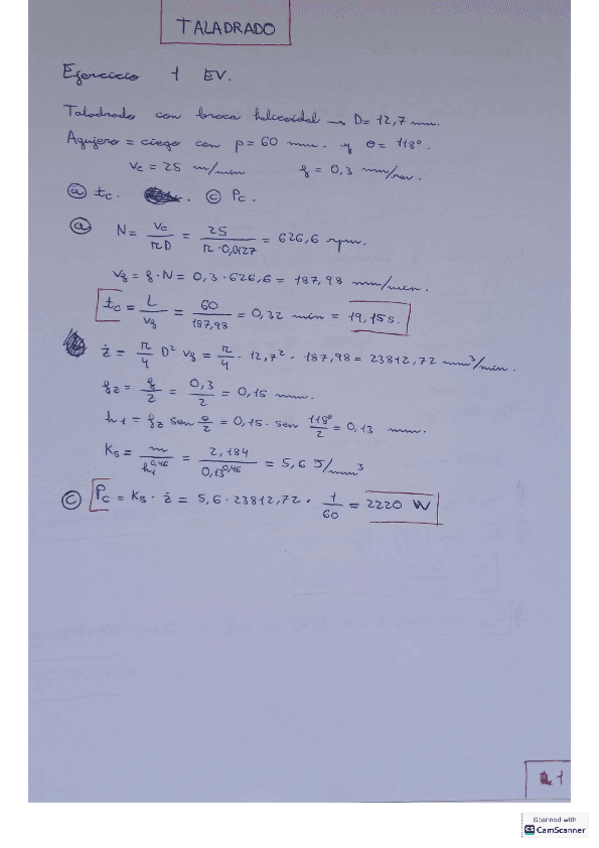 TALADRADO
Ejercicio 1 EV.
Taladrado con broca helicoidal → D= 12,7 mm.
Agujero = ciego con p= 60 mm. y θ= 118º.
Vc = 25 m/min f = 0,3 mm/rev.
ⓐ tc. . ⓒ Pc.
ⓐ N= Vc/πD = 25/π·0,0127 = 626,6 rpm.
Vf = f·N = 0,3·626,6 = 187,98 mm/min.
tc = L/Vf = 60/187,98 = 0,32 min = 19,15 s.
ż = π/4 D² Vf = π/4 · 12,7² · 187,98 = 23812,72 mm³/min.
fz = f/z = 0,3/2 = 0,15 mm.
h1 = fz sen θ/2 = 0,15· sen 118º/2 = 0,13 mm.
Ks = m/h1^0,46 = 2,184/0,13^0,46 = 5,6 J/mm³
ⓒ Pc = Ks · ż = 5,6 · 23812,72 · 1/60 = 2220 W
1
Scanned with
CS CamScanner